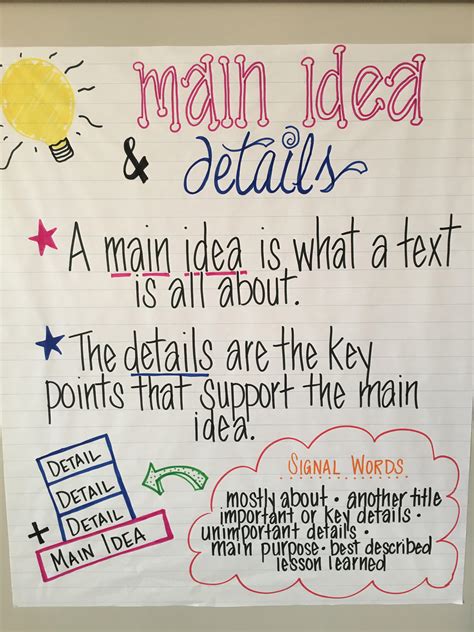 main idea
& details
A main idea is what a text
is all about.
The details are the key
points that support the main
idea.
DETAIL
DETAIL
DETAIL
+ MAIN IDEA
SIGNAL WORDS
mostly about • another title
important or key details •
unimportant details •
main purpose • best described
lesson learned